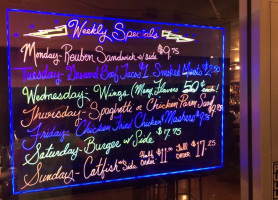 Weekly Specials
Monday- Reuben Sandwich w/side $9.75
Tuesday- Ground Beef Tacos $2.50
Wednesday- Wings (Many Flavors) 50¢ each!
Thursday- Spaghetti or Chicken Parm
Friday- Chicken Fried Chicken
Saturday- Burger w/ Side $7.95
Sunday- Catfish w/ Side Half Order $11.00 Full Order $17.25